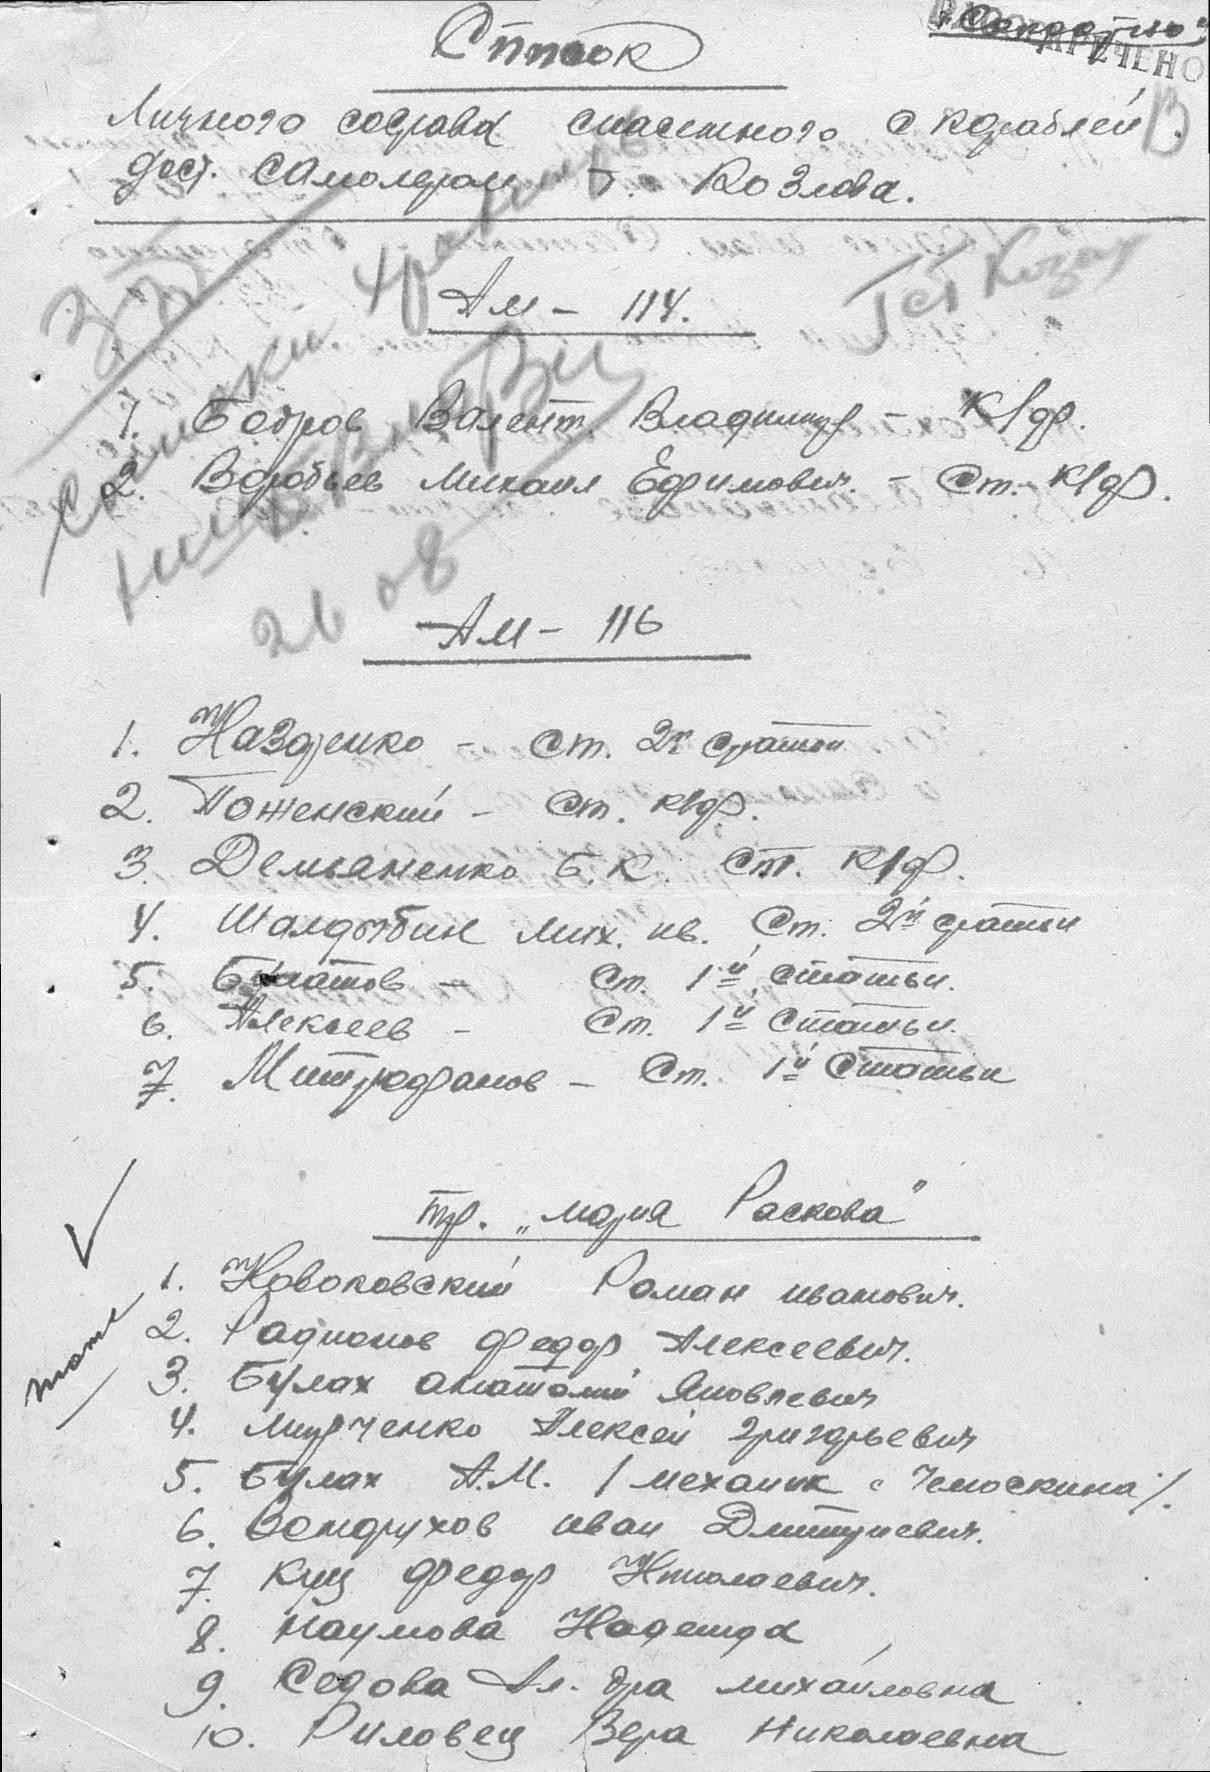 „Секретно"
РАССЕКРЕЧЕНО
Список
Личного состава снасенного с кораблей
дост. самолетом т. Козлова.
АМ – 114.
1. Бобров Валент. Владимир – к/ф.
2. Воробьев Михаил Ефимович. – Ст. к/ф.
26 08
АМ – 116
1. Назаренко – ст. 2й статьи
2. Поженский – ст. к/ф.
3. Демьяненко Б.К. ст. к/ф.
4. Шалдыбин Мих. ив. Ст. 2й статьи
5. Булатов – Ст. 1й статьи.
6. Алексеев – Ст. 1й статьи.
7. Митрофанов – Ст. 1й статьи
тр. „Мария Раскова"
1. Роман иванович.
2. Радионов федор Алексеевич.
3. Булах анатолий Яковлевич
4. Алексей григорьевич
5. Булах А.М. /механик с Челюскина/.
6. Вондрухов иван Дмитриевич.
7. Куц федор Николаевич.
8. Наумова Надежда
9. Седова Ал-дра михайловна
10. Риловец Вера Николаевна